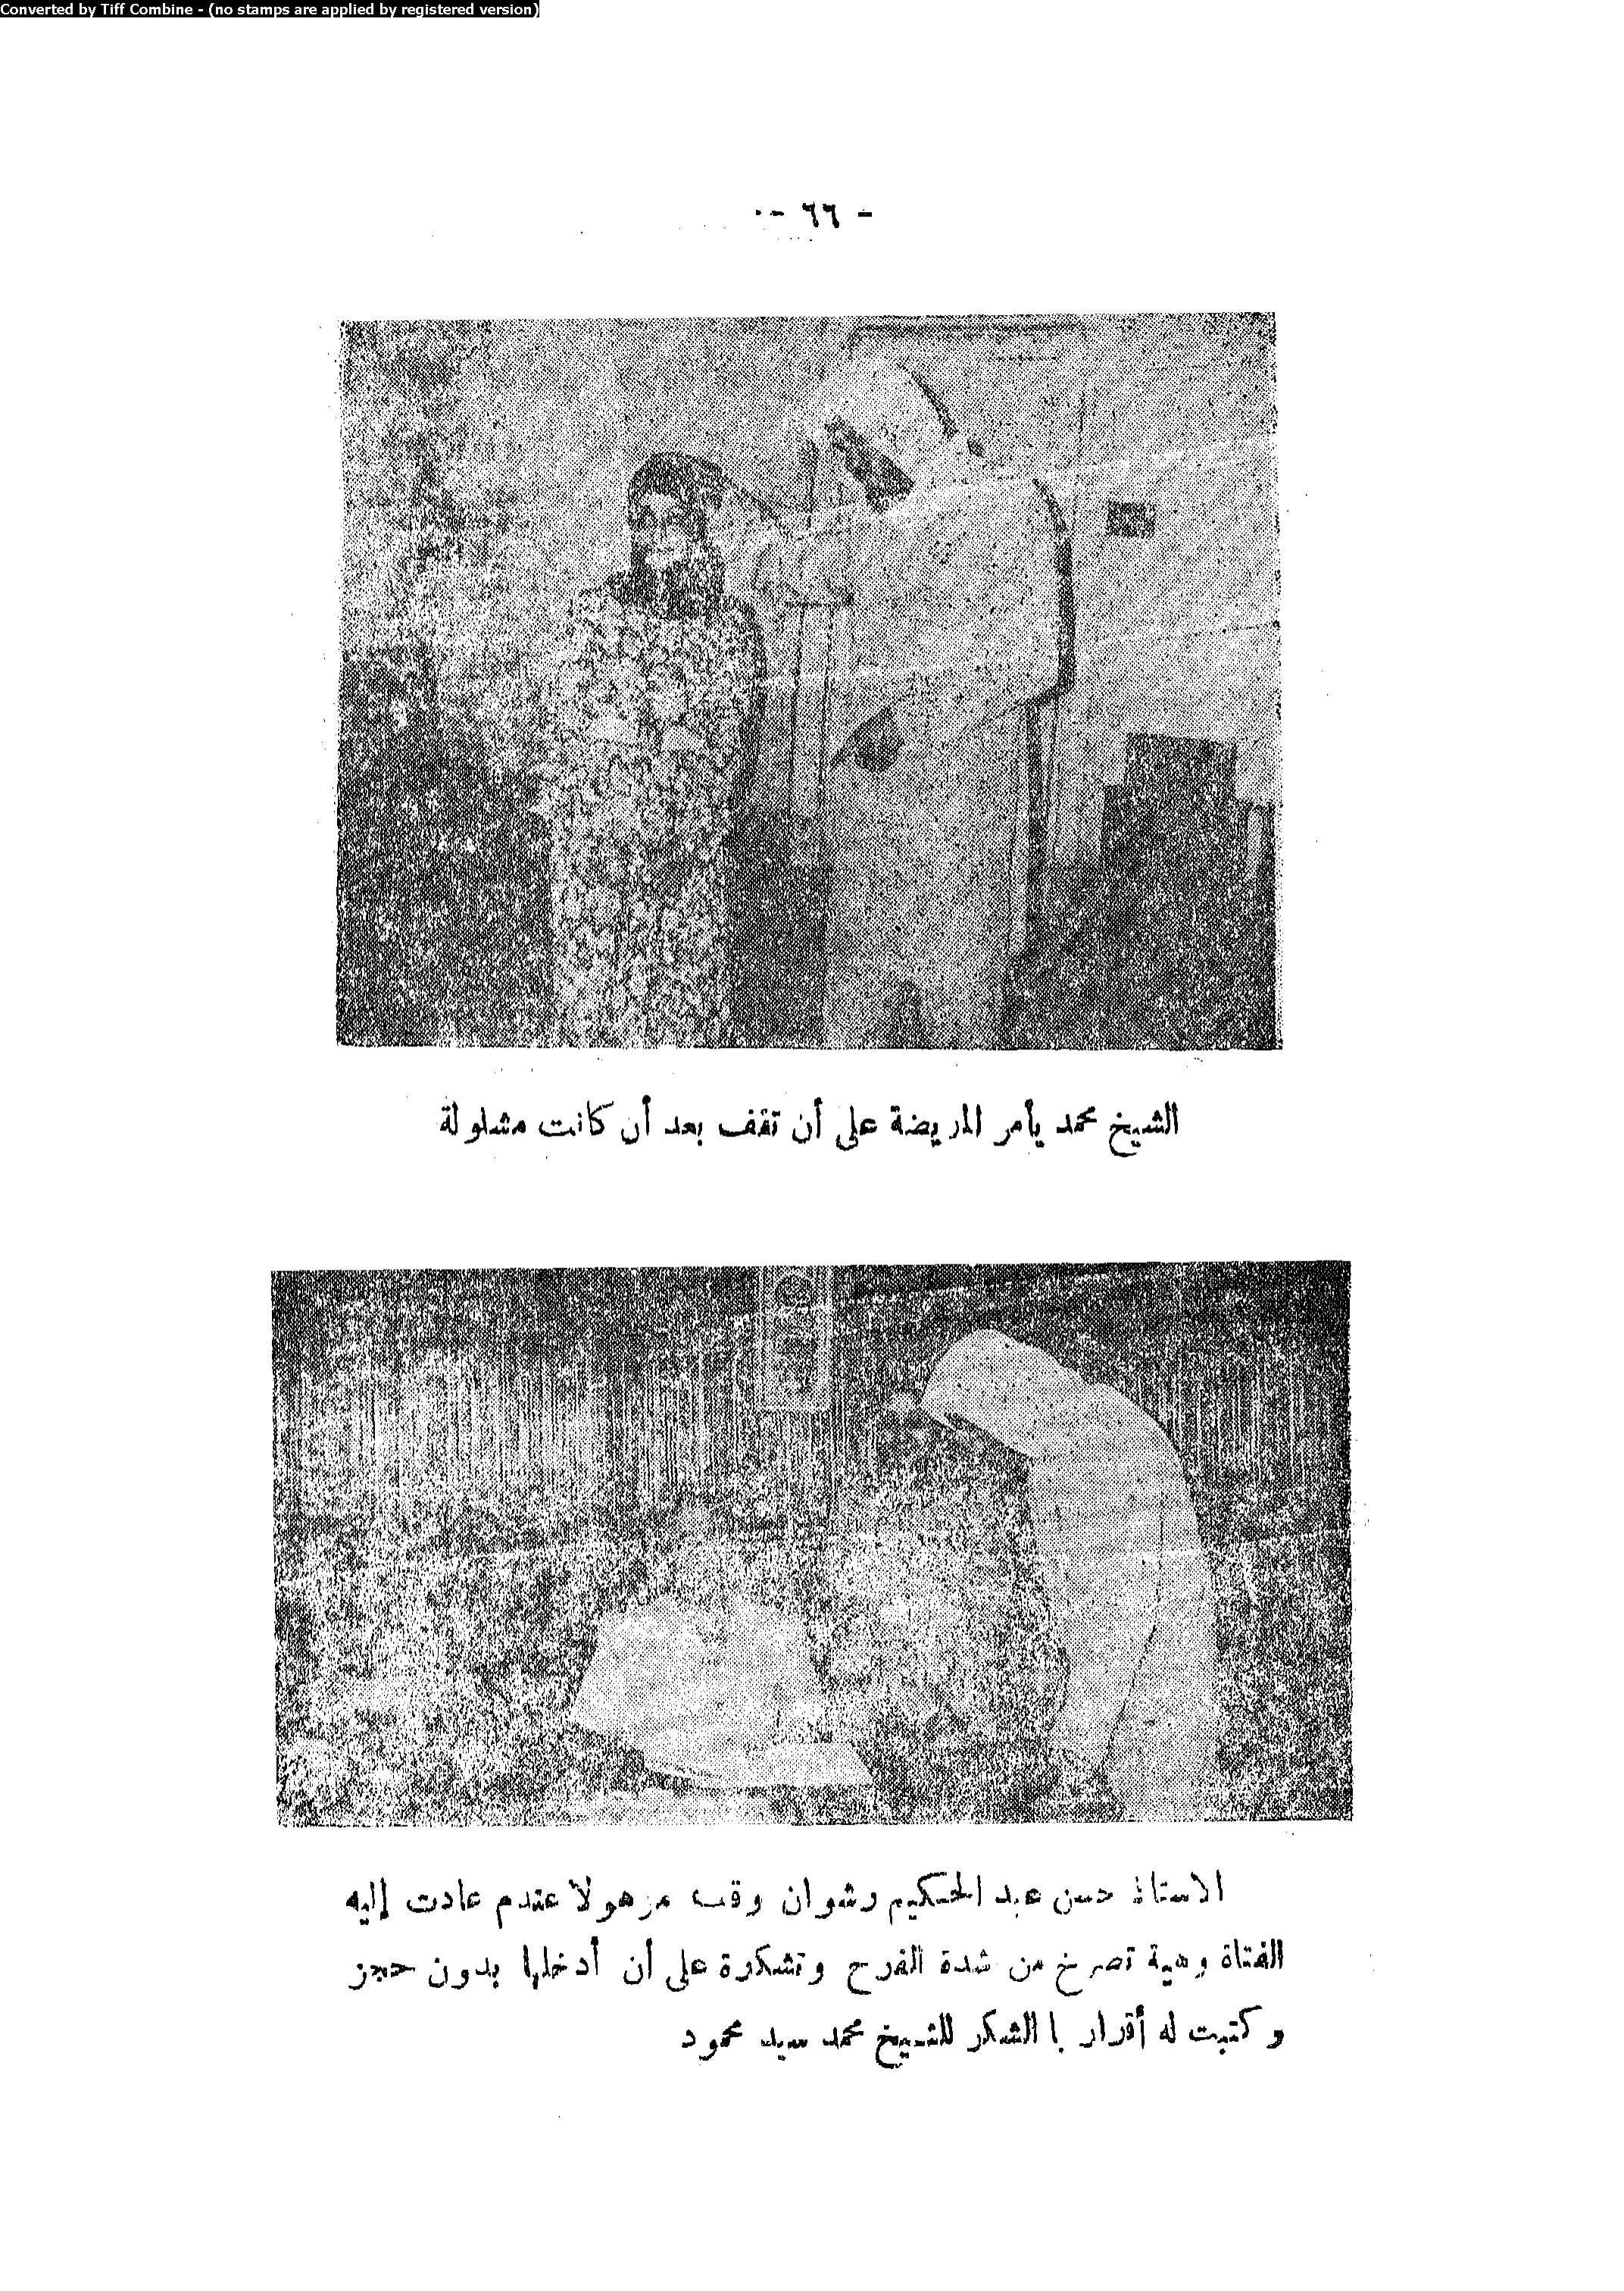 Converted by Tiff Combine - (no stamps are applied by registered version)
- ٦٦ -
الشيخ محمد يأمر المريضة على أن تقف بعد أن كانت مشلولة
الاستاذ حسن عبد الحكيم رشوان وقف مزهولا عندم عادت إليه
الفتاة وهية تصرخ من شدة الفرح وتشكرة على أن أدخلها بدون حجز
وكتبت له أقرار با الشكر للشيخ محمد سيد محمود